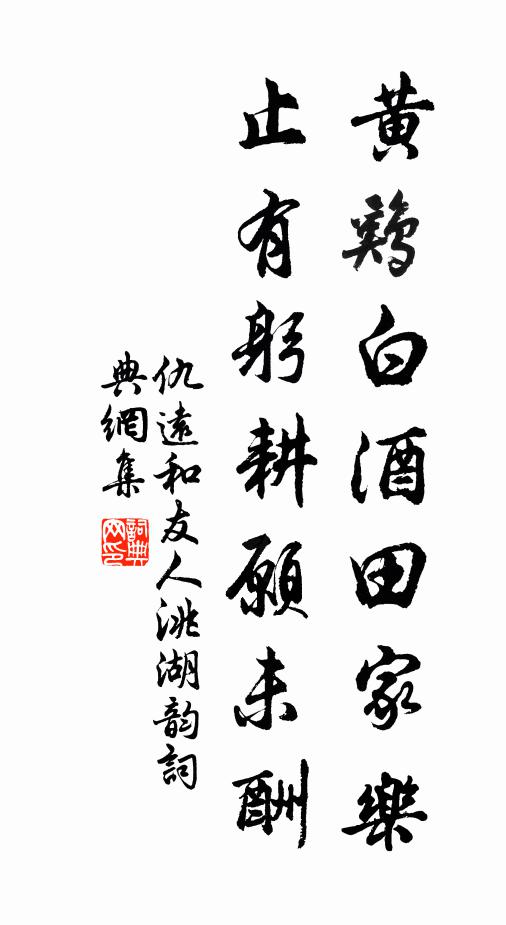 黃鷄白酒田家樂
止有躬耕願未酬
仇遠和友人洮湖韵詞
典網集
詞典网印